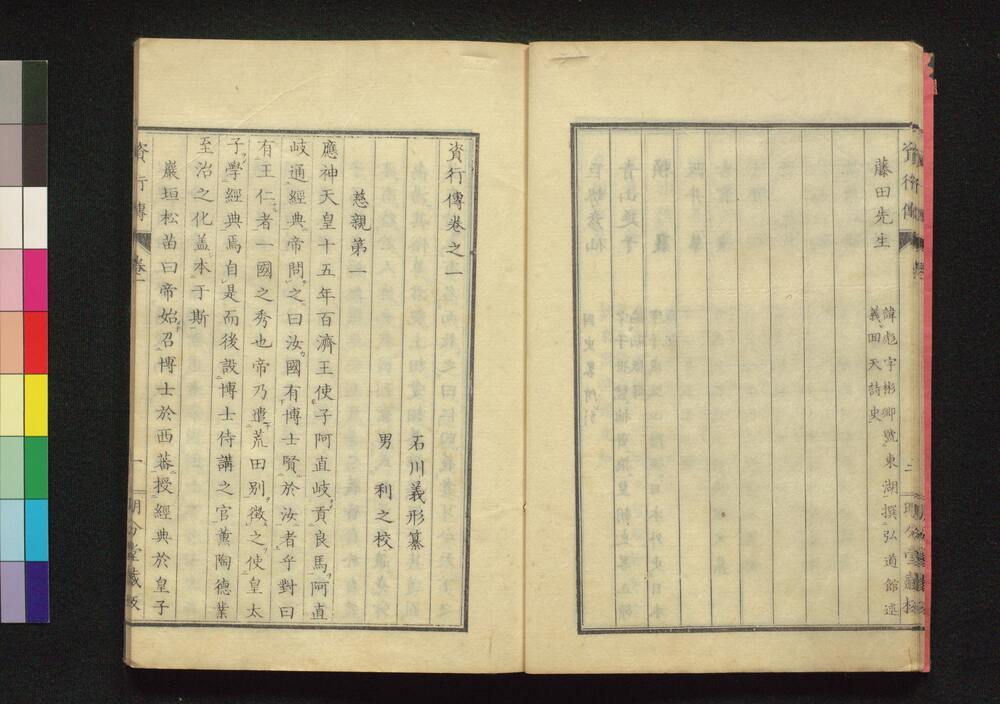 藤田先生
諱彪字彬卿號東湖撰弘道館述
義回天詩史
資行傳卷之一
石川義形纂
男 利之校
慈親第一
應神天皇十五年百濟王使子阿直岐貢良馬阿直
岐通經典帝問之曰汝國有博士賢於汝者乎對曰
有王仁者一國之秀也帝乃遣荒田別徵之使皇太
子學經典焉自是而後設博士侍講之官薰陶德業
至治之化蓋本于斯
巖垣松苗曰帝始召博士於西蕃授經典於皇子
資行傳 卷一 一 明分堂藏板